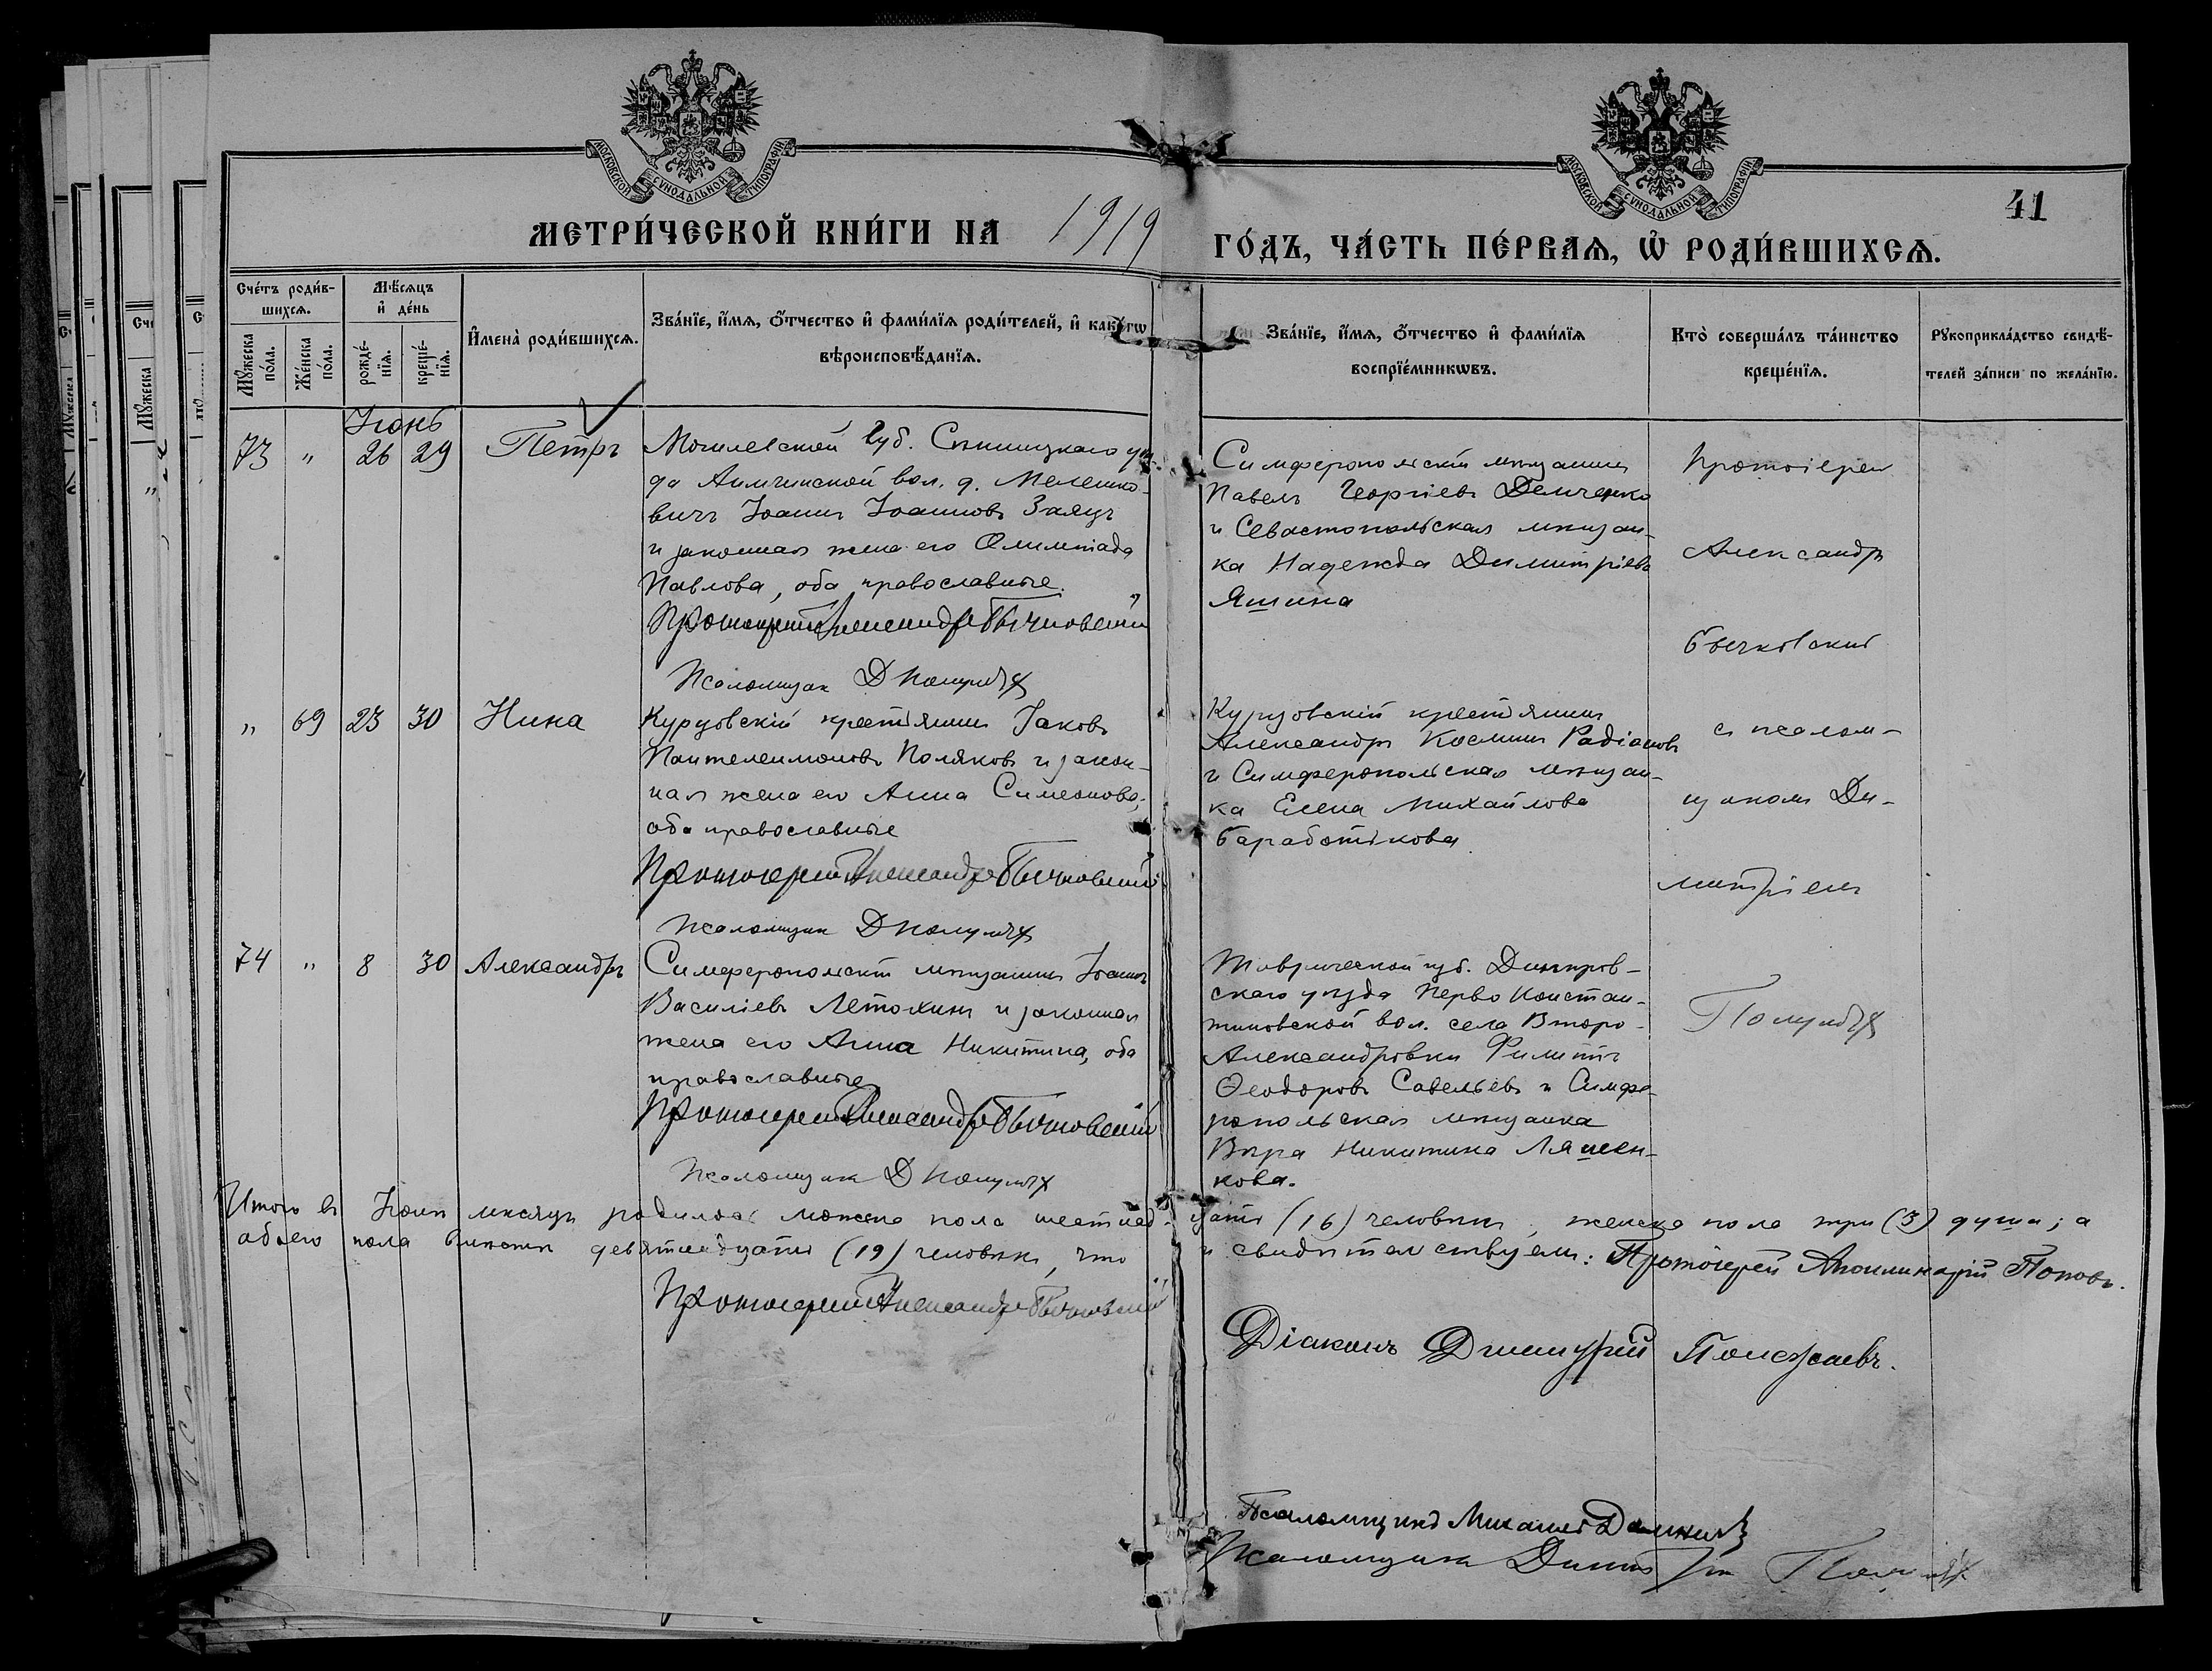 МОСКОВСКОЙ СѴНОДАЛЬНОЙ ТИПОГРАФІИ
МОСКОВСКОЙ СѴНОДАЛЬНОЙ ТИПОГРАФІИ
41
МЕТРИ́ЧЕСКОЙ КНИ́ГИ НА 1919 ГО́ДЪ, ЧА́СТЬ ПЕ́РВАѦ, Ѡ҆ РОДИ́ВШИХСѦ.
Сче́тъ роди́в-
шихсѧ.
Мꙋ́жеска по́ла.
Же́нска по́ла.
Мѣ́сѧцъ
и҆ де́нь
рожде́-
нїѧ.
креще́-
нїѧ.
И҆мена̀ роди́вшихсѧ.
Зва́нїе, и҆́мѧ, ѻ҆́тчество и҆ фами́лїѧ роди́телей, и҆ како́гѡ
вѣроисповѣ́данїѧ.
Зва́нїе, и҆́мѧ, ѻ҆́тчество и҆ фами́лїѧ
воспрїе́мникѡвъ.
Кто̀ соверша́лъ та́инство
креще́нїѧ.
Рꙋкоприкла́дство свидѣ́-
телей за́писи по жела́нїю.
Іюнь
73 " 26 29 Петръ
Могилевской губ. Сѣннинскаго уѣз-
да вол. д. Мелешко-
вичъ Іоаннъ Іоанновъ Заяцъ
и законная жена его Олимпіада
Павлова, оба православные.
Протоіерей Александръ Бычковскій
Псаломщик Д
Симферопольскій мѣщанинъ
Павелъ Георгіевъ Демченко
и Севастопольская мѣщан-
ка Надежда Димитріева
Яшина
Протоіерей
Александръ
Бычковскій
" 69 23 30 Нина
Курузовскій крестьянинъ Іаковъ
Пантелеимоновъ Поляковъ и закон-
ная жена его Анна Симеонова,
оба православные
Протоіерей Александръ Бычковскій
Псаломщик Д
Курузовскій крестьянинъ
Александръ Косминъ Радіоновъ
и Симферопольская мѣщан-
ка Елена Михайлова
Баработькова
съ псалом-
щикомъ Ди-
митріемъ
74 " 8 30 Александръ
Симферопольскій мѣщанинъ Іоаннъ
Василіевъ Летохинъ и законная
жена его Анна Никитина, оба
православные
Протоіерей Александръ Бычковскій
Псаломщик Д
Таврической губ. Днѣпров-
скаго уѣзда Перво Констан-
тиновской вол. села Второ-
Александровки Филиппъ
Ѳеодоровъ Савельевъ и Симфе-
ропольская мѣщанка
Вѣра Никитина Ляшен-
кова.
Итого въ Іюнѣ мѣсяцѣ родилось мужеска пола шестнад- цать (16) человѣкъ, женска пола три (3) души; а
обоего пола вмѣстѣ девятнадцать (19) человѣкъ, что и свидѣтельствуемъ: Протоіерей Аполлинарій Поповъ.
Протоіерей Александръ Бычковскій
Діаконъ Димитрій
Псаломщикъ Михаилъ
Псаломщикъ Димитрій